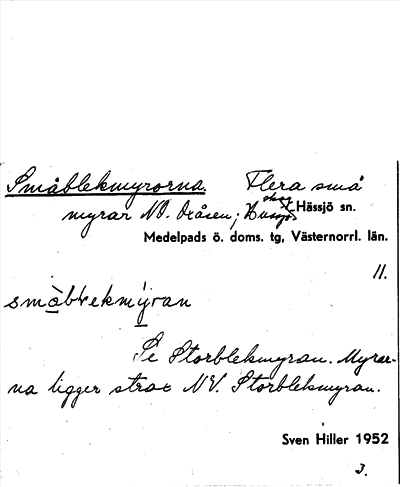 Småblekmyrorna. Flera små
myrar NO. Oxåsen; skog Hässjö sn.
Medelpads ö. doms. tg, Västernorrl. län.
11.
småblekmýran
Se Storblekmyran. Myrar-
na ligger strax NV. Storblekmyran.
Sven Hiller 1952
3.